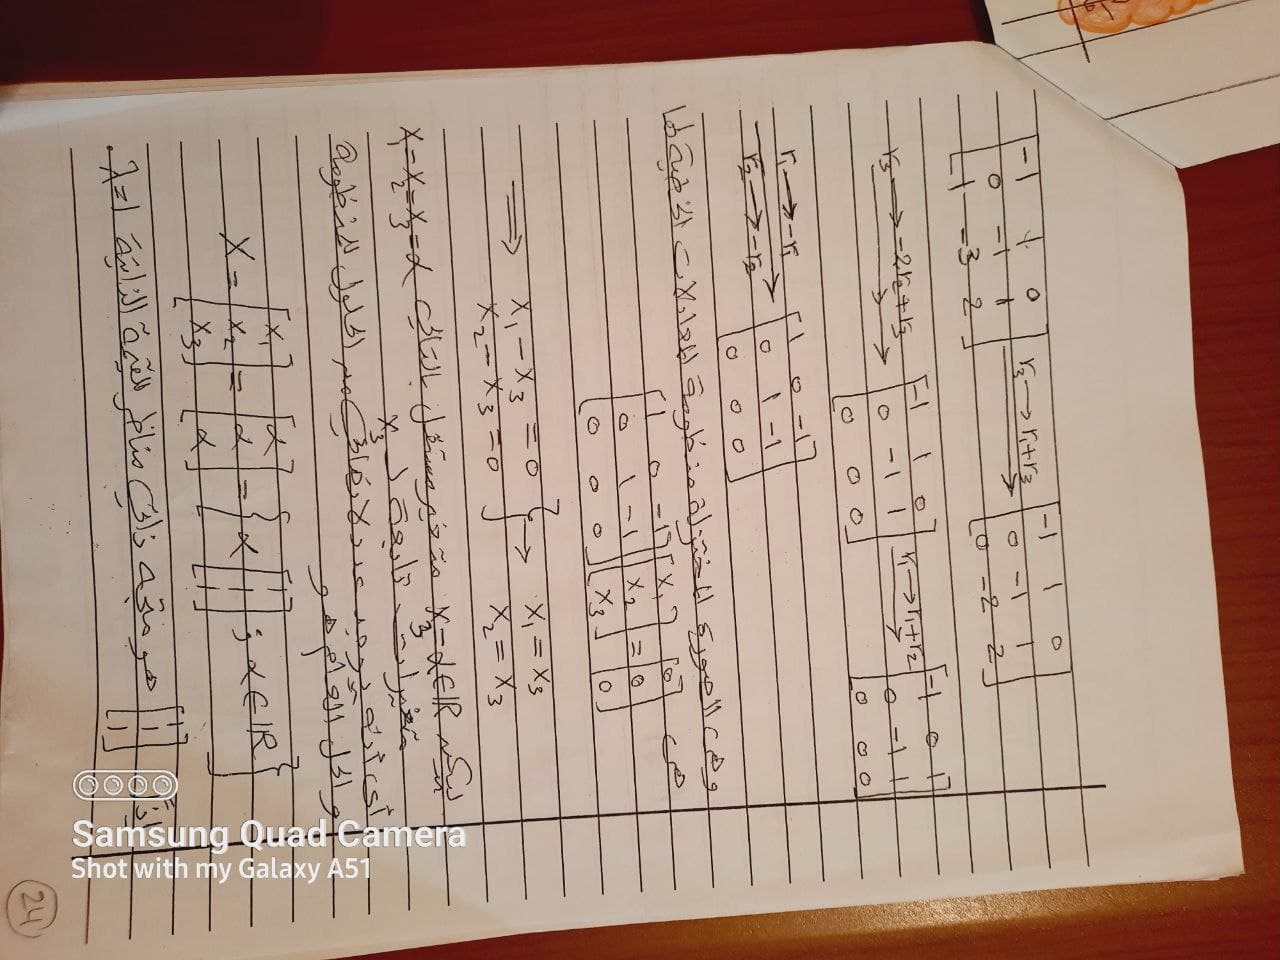 [-1 1 0; 0 -1 1; 1 -3 2] r₃→r₁+r₃ [-1 1 0; 0 -1 1; 0 -2 2]
r₃→-2r₂+r₃ [-1 1 0; 0 -1 1; 0 0 0] r₁→r₁+r₂ [-1 0 1; 0 -1 1; 0 0 0]
r₁→-r₁ r₂→-r₂ [1 0 -1; 0 1 -1; 0 0 0]
وهي الصورة المختزلة منظومة المعادلات الخطية لها
هي
[1 0 -1; 0 1 -1; 0 0 0] [x₁; x₂; x₃] = [0; 0; 0]
⇒ x₁ - x₃ = 0 } → x₁ = x₃
x₂ - x₃ = 0 x₂ = x₃
ليكن x₃=α∈ℝ متغير مستقل بالتالي x₁=x₂=x₃=α
متغيرات تابعة لـ x₃
أي أنه يوجد عدد لا نهائي من الحلول للمنظومة
والحل العام هو
X = [x₁; x₂; x₃] = [α; α; α] = { α [1; 1; 1] ; α∈ℝ }
إذاً [1; 1; 1] هو متجه ذاتي مناظر للقيمة الذاتية λ=1.
24
Samsung Quad Camera
Shot with my Galaxy A51